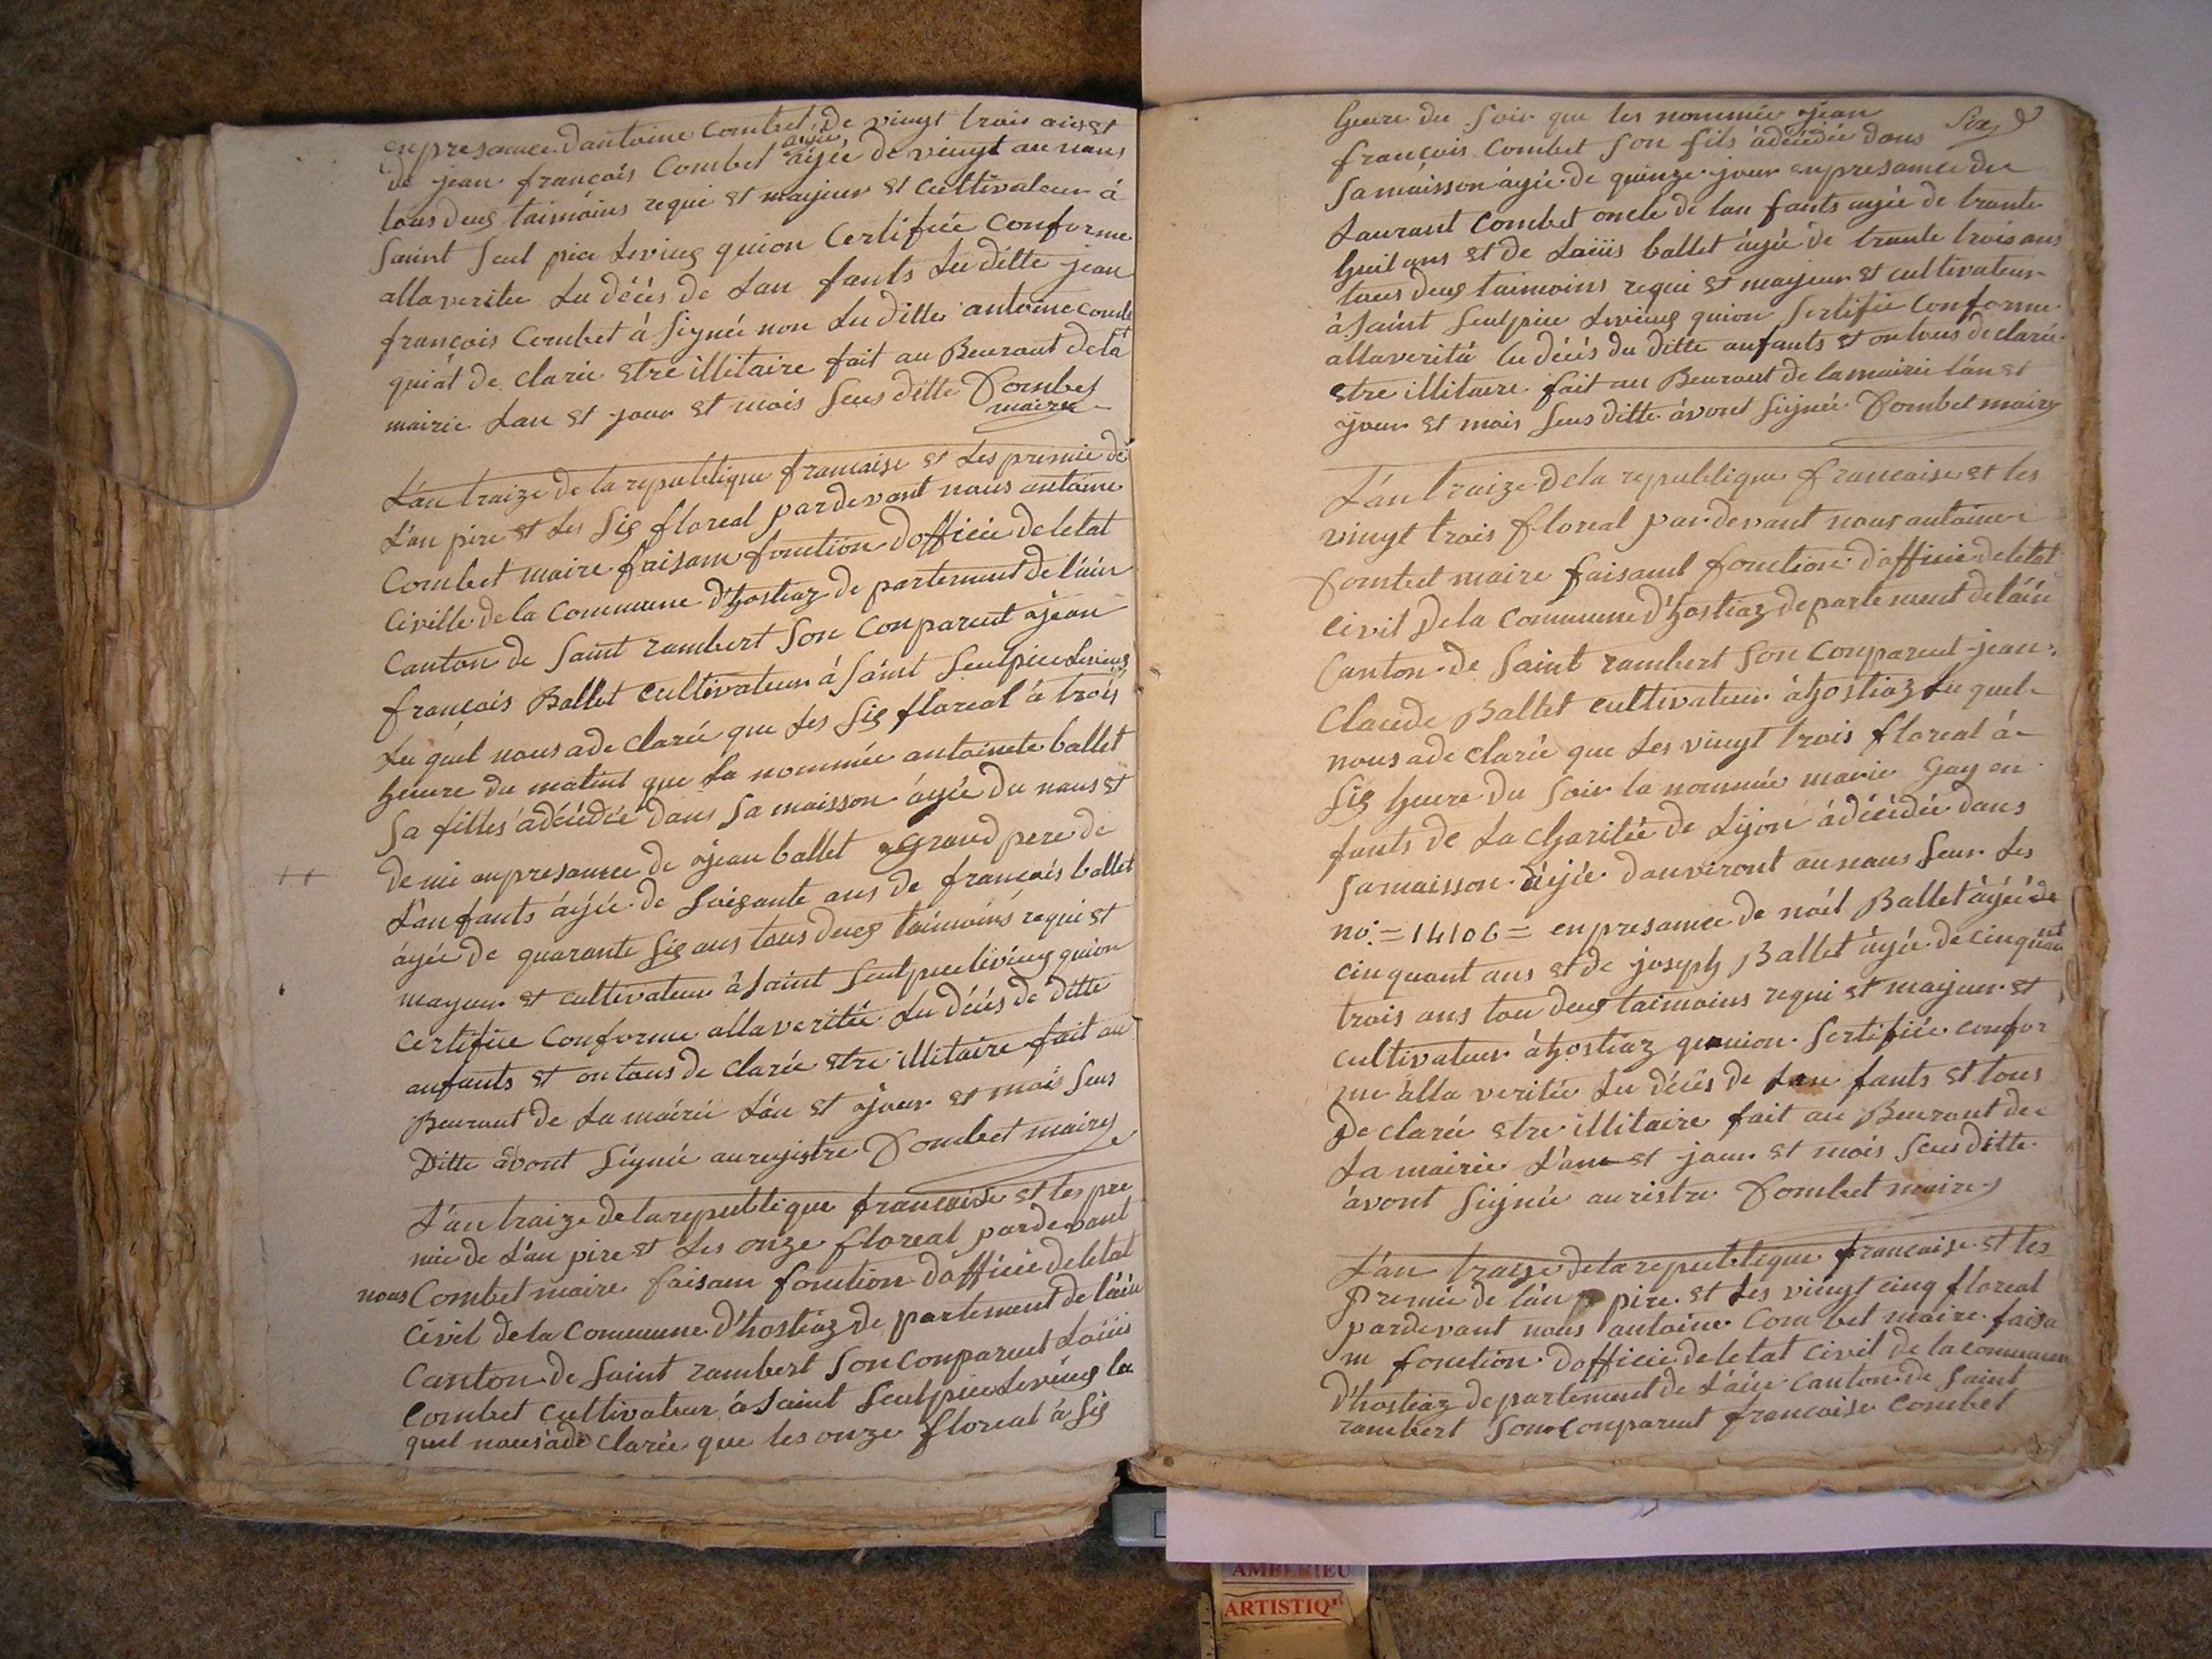 enpresance dantoine Combet de vingt trois ans et
de jean françois Combet âyée âyée de vingt au nans
tous deus taimoins requi et mayeur et cultivateur à
Saint Seul pice levieus quion Certifiée Conforme
alla veritee Lu décés de Lan fants Lu ditte jean
françois Combet à Signée non Lu ditte antoine Combe
quiat de clarie etre illitaire fait au Beuraut de la
mairie Lan et jour et mois Sus ditte Combet
maire
L'an traize de la republique francaise et Les premie de
L'an pire et Les Sis floreal par devant nous antoine
Combet maire faisam fonction d'officie de letat
Civille de la Commune d'hostiaz de partement de l'ain
Canton de Saint rambert Son Conparent jean
françois Ballet cultivateur à Saint Seulpice Levieus
Lu quel nous a de clarée que Les Sis floreal à trois
heure du matint que La nommée antoinete ballet
Sa filles à décédée dans Sa maisson âyée du nans et
de mi anpresance de jean ballet grand pere de
L'anfants âyée de Soisante ans de françois ballet
âyée de quarante Sis ans tous deus taimoins requi et
mayeur et cultivateur à Saint Seulpice levieus quion
Certifiee Conforme alla veritée Lu décés de ditte
anfants et on tous de clarée etre illitaire fait au
Beuraut de La mairie L'an et jour et mois Sus
Ditte avont Signée au rejistre Combet maire
L'an traize de la republique francaise et les pre
mie de L'an pire et Les onze floreal par devant
nous Combet maire faisam fonction d'officie de letat
Civil de la Commune d'hostiaz de partement de l'ain
Canton de Saint rambert Son Conparent Loüis
Combet cultivateur à Saint Seulpice Levieus le
quel nous a de clarée que les onze floreal à Sis
heure du Soir que les nommée jean
Six
françois Combet Son fils à décédée dans
Sa maisson âyée de quinze jour enpresance de
Laurant Combet oncle de lan fants âyée de trante
huit ans et de Loüis ballet âyée de trante trois ans
tous deus taimoins requi et mayeur et cultivateur
à Saint Seulpice Levieus quion Sertifie Conforme
alla verité Lu décés du ditte anfants et on tous de clarée
etre illitaire fait au Beuraut de la mairie L'an et
jour et mois Sus ditte avont Signée Combet maire
L'an traize de la republique francaise et les
vingt trois floreal par devant nous antoine
Combet maire faisant fonction d'officie de letat
Civil de la Commune d'hostiaz departement de l'ain
Canton de Saint rambert Son Conparent jean
Claude Ballet cultivateur à hostiaz Lu quel
nous a de clarée que Les vingt trois floreal à
Sis heure du Soir la nommée marie Gay en
fants de La Charitée de Lijon à décédée dans
Sa maisson âyée danviront aunans Seur Les
no = 14106 = enpresance de noél Ballet âyée de
cinquant ans et de joseph Ballet âyée de cinquant
trois ans tou deus taimoins requi et mayeur et
cultivateur à hostiaz quion Sertifiée Confor
me alla veritée Lu décés de Lan fants et tous
de clarée etre illitaire fait au Beuraut de
La mairie L'an et jour et mois Sus ditte
avont Signée au ristre Combet maire
L'an traize de la republique francaise et les
Premie de lan pire et Les vingt cinq floreal
par devant nous antoine Combet maire faisa
m fonction d'officie de letat Civil de la commune
d'hostiaz departement de L'ain Canton de Saint
rambert Son Conparent francoise Combet
AMBERIEU
ARTISTIQ